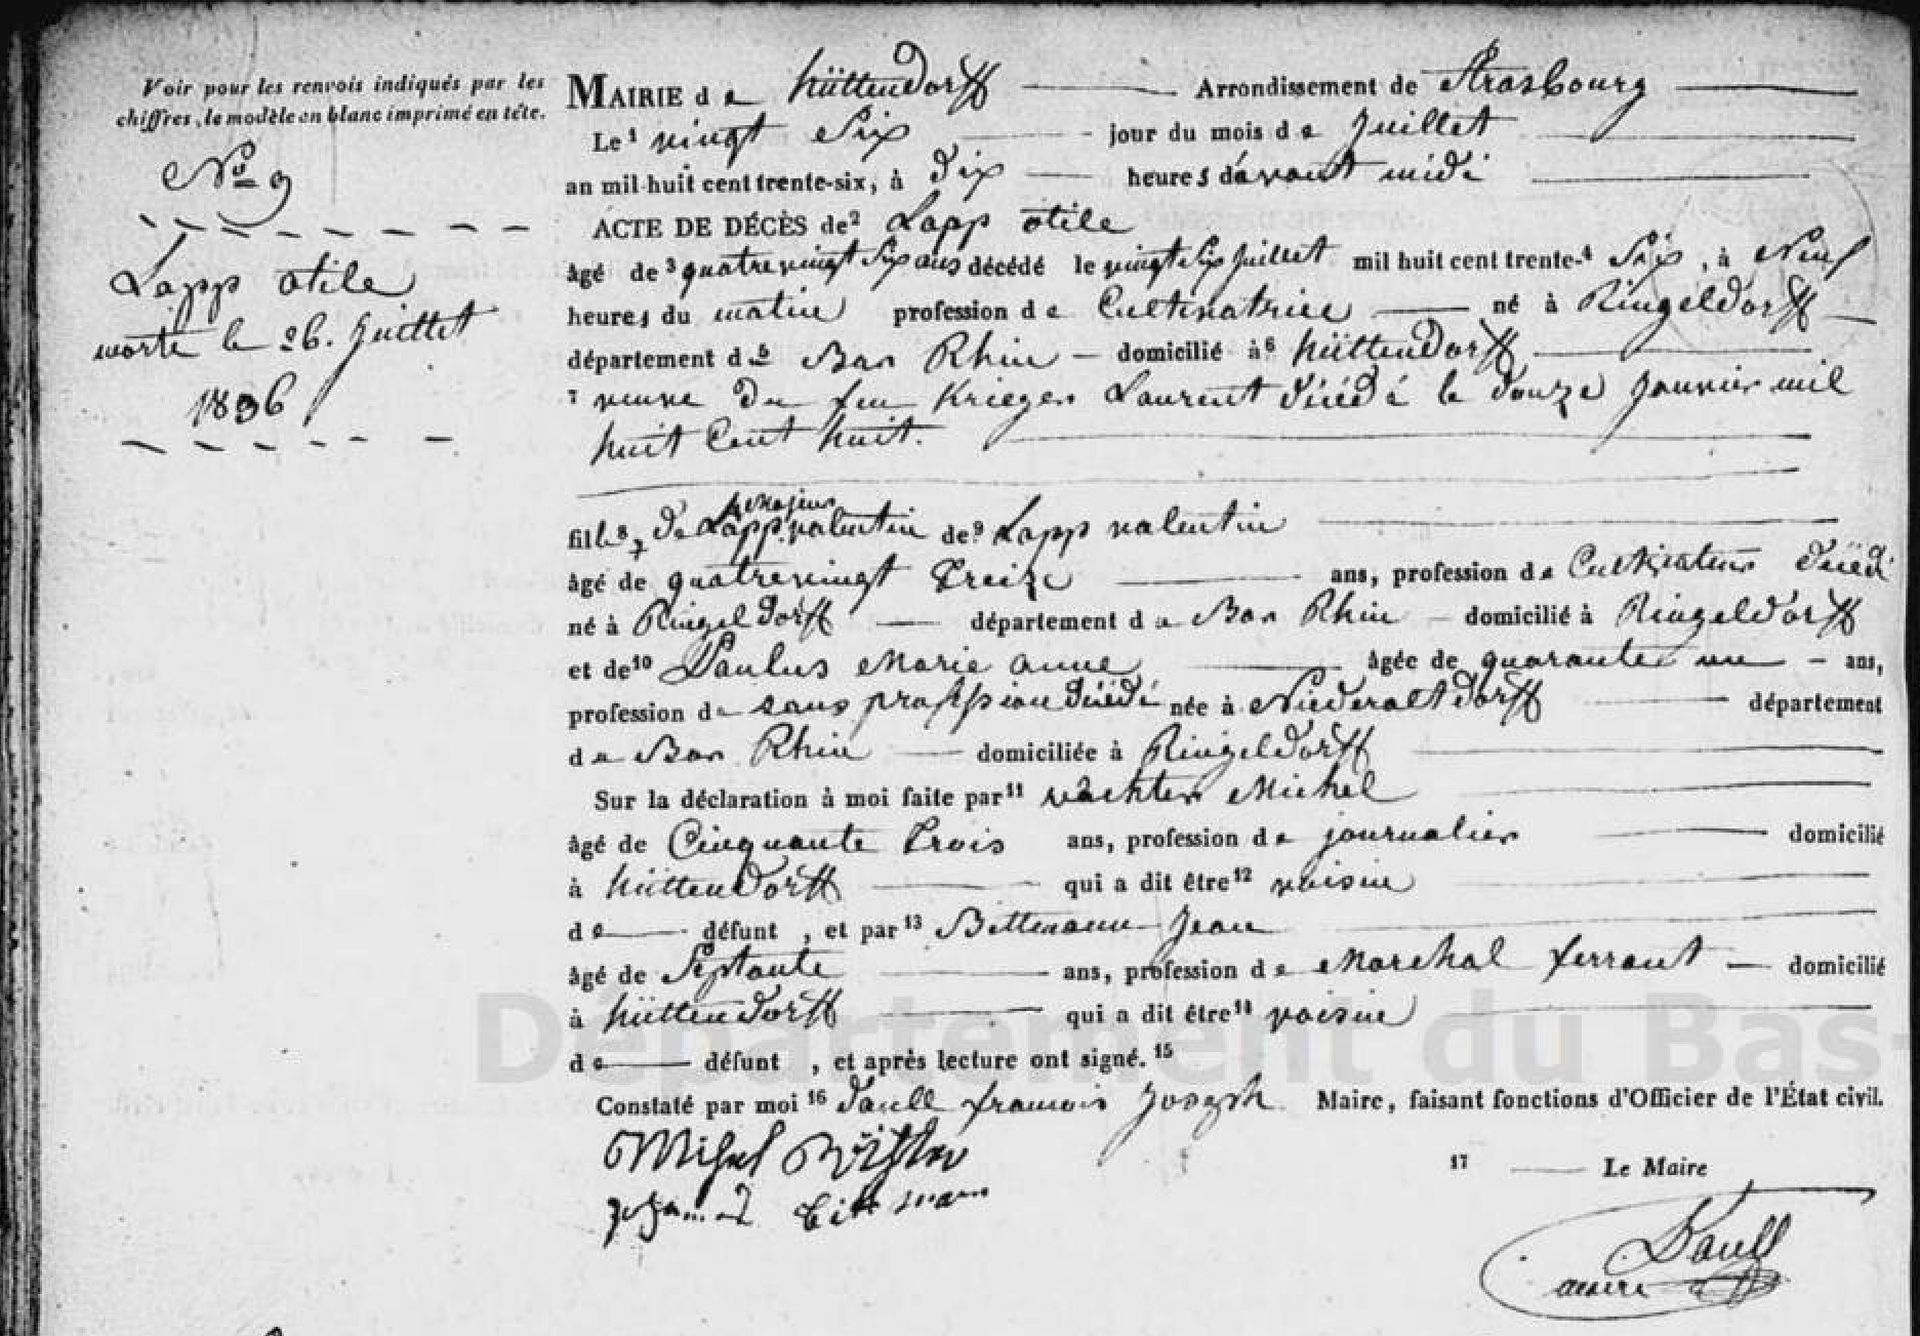 Voir pour les renvois indiqués par les
chiffres, le modèle en blanc imprimé en tête.
N.º 9
Lapp otile
morte le 26. Juillet
1836
MAIRIE de hüttendorff Arrondissement de Strasbourg
Le 1 vingt Six jour du mois de Juillet
an mil-huit cent trente-six, à dix heures davant midi
ACTE DE DÉCÈS de 2 Lapp otile
âgé de 3 quatrevingt Six ans décédé le vingt Six Juillet mil huit cent trente-4 Six, à Neuf
heures du matin profession de Cultivatrice né à Ringeldorff
département d 5 Bas Rhin domicilié à 6 hüttendorff
7 veuve du feu Krieger Laurent décédé le douze Janvier mil
huit Cent huit.
fille 8 de Lapp valentin de 9 Lapp valentin
âgé de quatrevingt Treize ans, profession de Cultivateur décéd
né à Ringeldorff département de Bas Rhin domicilié à Ringeldorff
et de 10 Paulus Marie anne âgée de quarante un ans,
profession de sans profession décédé née à Niederaltdorff département
de Bas Rhin domiciliée à Ringeldorff
Sur la déclaration à moi faite par 11 wächter Michel
âgé de Cinquante Trois ans, profession de journalier domicilié
à hüttendorff qui a dit être 12 voisin
de défunt , et par 13 Bittmann Jean
âgé de Septante ans, profession de Marchal ferrant domicilié
à hüttendorff qui a dit être 14 voisin
de défunt , et après lecture ont signé. 15
Constaté par moi 16 Daull francois Joseph Maire, faisant fonctions d'Officier de l'État civil.
Michel
17 Le Maire
Daull
maire
Département du Bas-